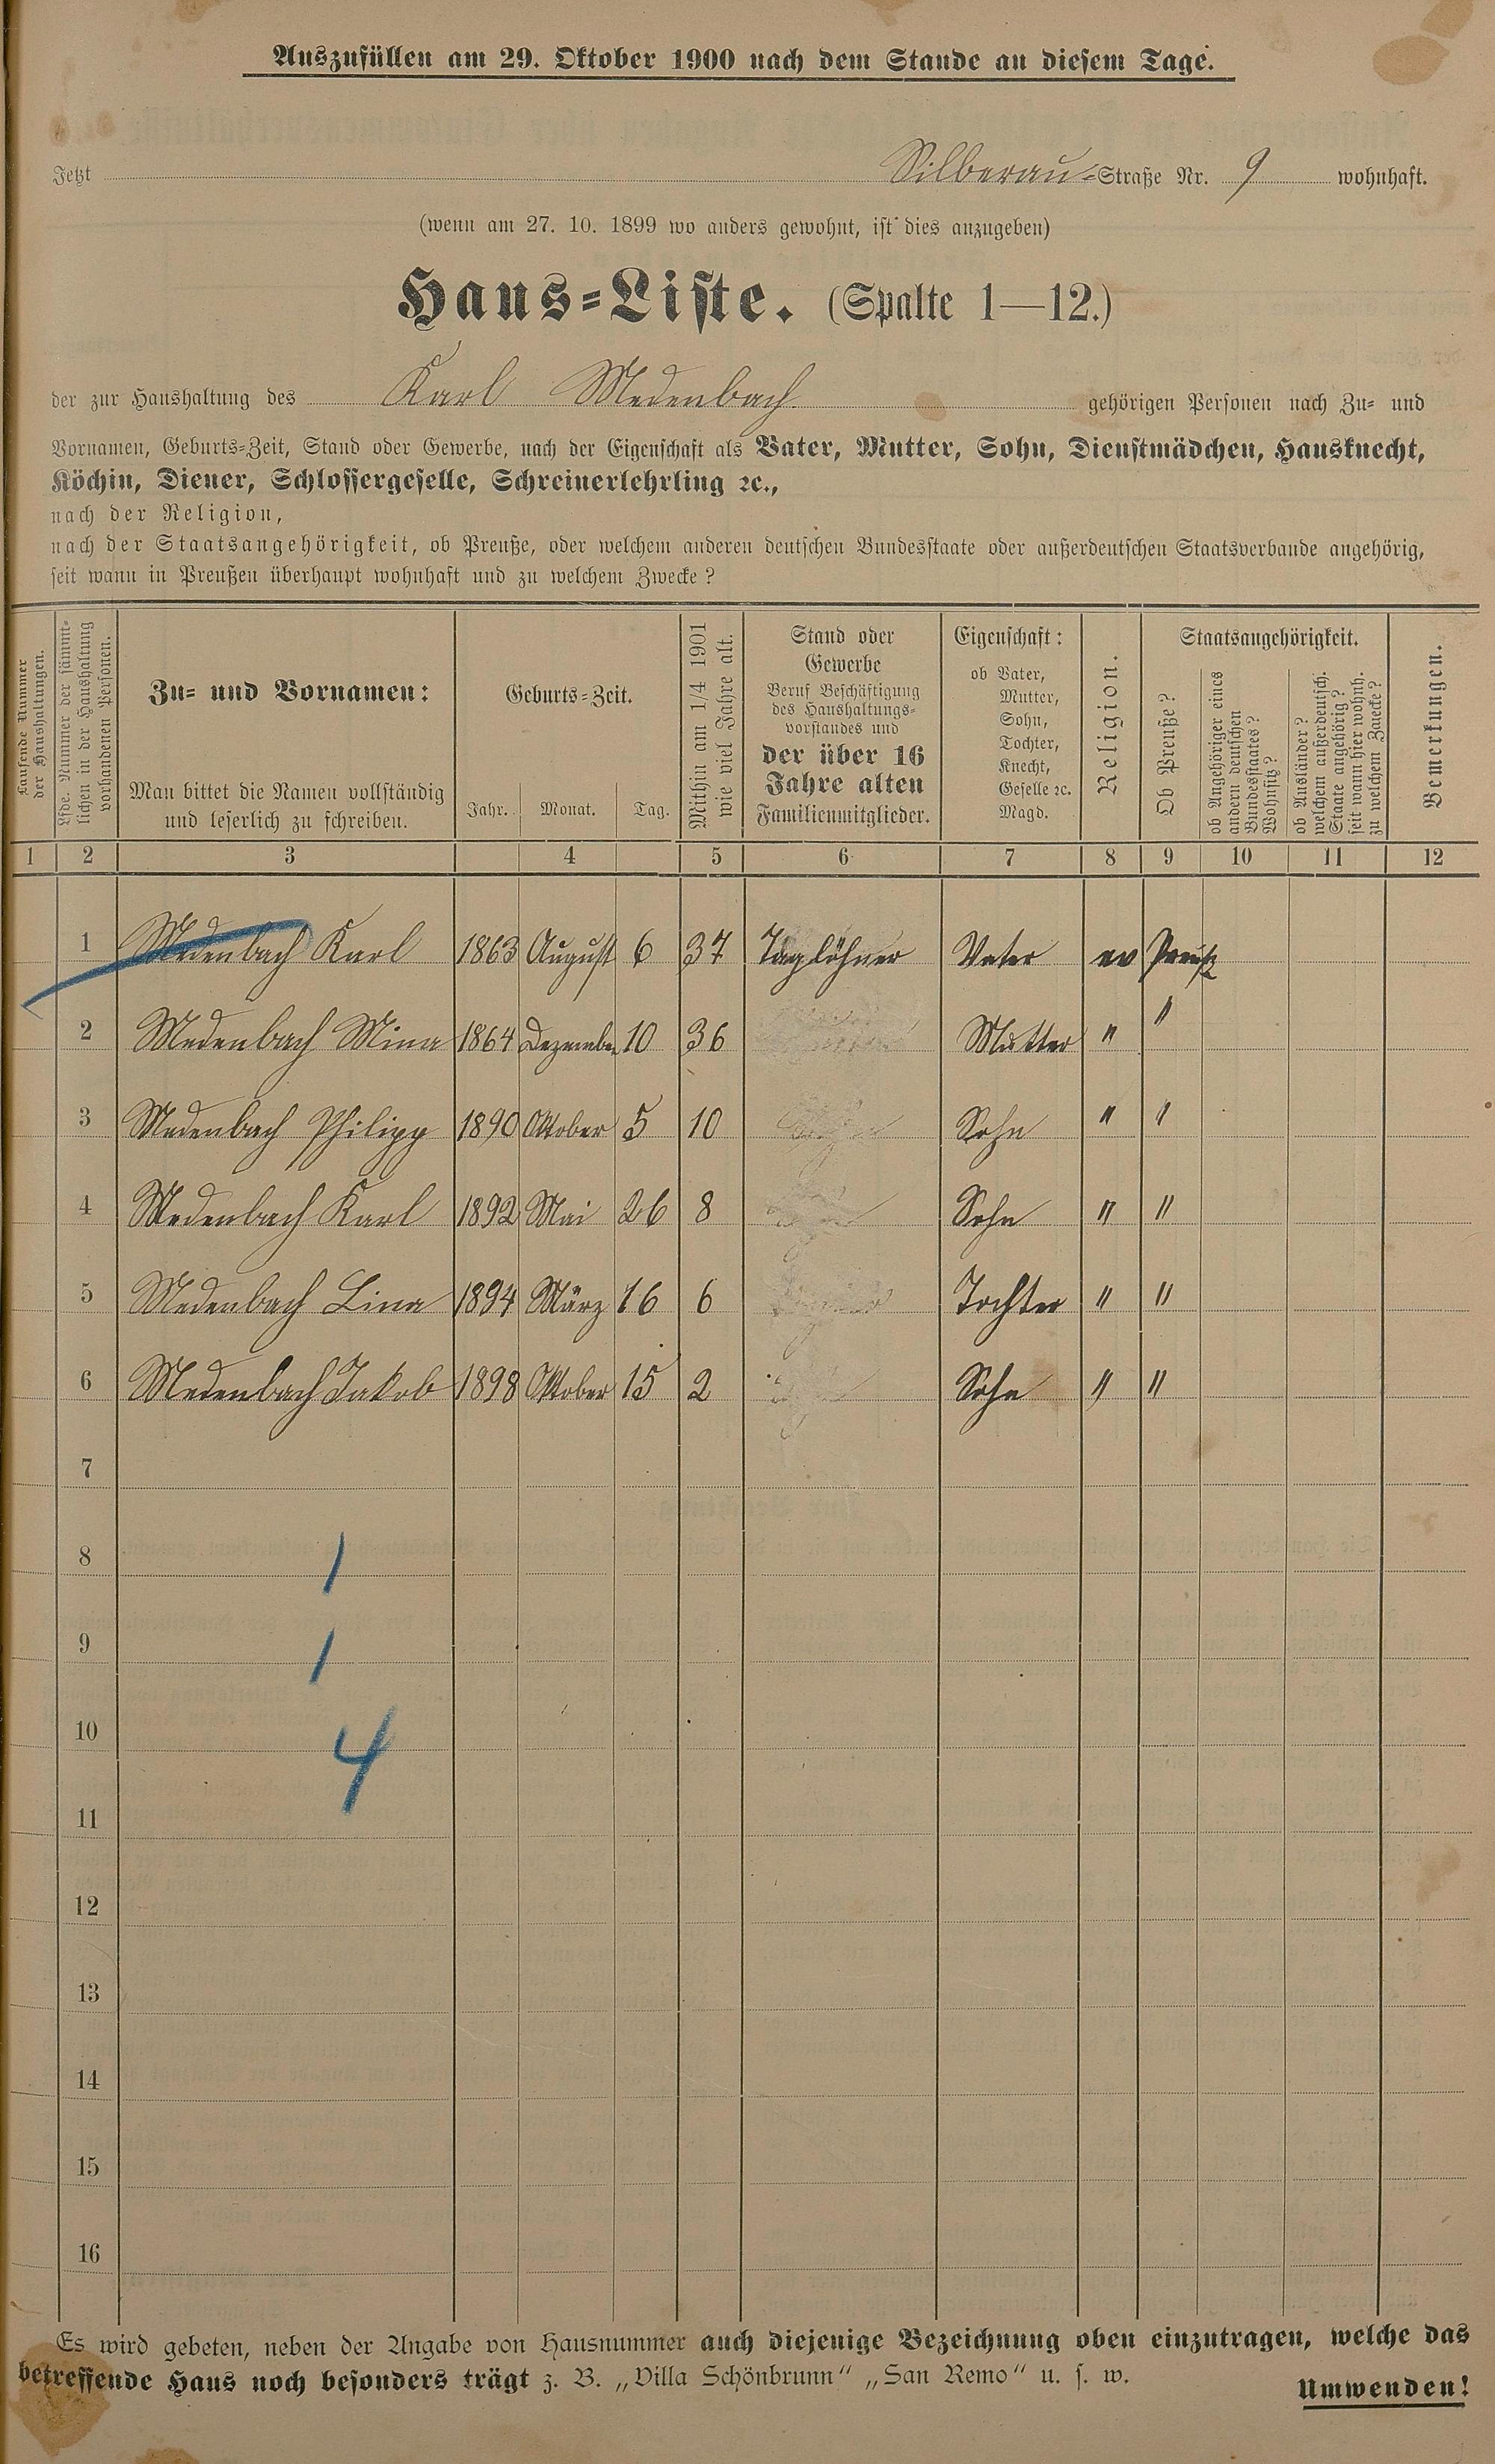 Auszufüllen am 29. Oktober 1900 nach dem Stande an diesem Tage.
Jetzt Silberau-Straße Nr. 9 wohnhaft.
(wenn am 27. 10. 1899 wo anders gewohnt, ist dies anzugeben)
Haus-Liste. (Spalte 1—12.)
der zur Haushaltung des Karl Medenbach gehörigen Personen nach Zu- und
Vornamen, Geburts-Zeit, Stand oder Gewerbe, nach der Eigenschaft als Vater, Mutter, Sohn, Dienstmädchen, Hausknecht,
Köchin, Diener, Schlossergeselle, Schreinerlehrling ꝛc.,
nach der Religion,
nach der Staatsangehörigkeit, ob Preuße, oder welchem anderen deutschen Bundesstaate oder außerdeutschen Staatsverbande angehörig,
seit wann in Preußen überhaupt wohnhaft und zu welchem Zwecke?
Laufende Nummer
der Haushaltungen.
Lfde. Nummer der sämmt-
lichen in der Haushaltung
vorhandenen Personen.
Zu- und Vornamen:
Man bittet die Namen vollständig
und leserlich zu schreiben.
Geburts-Zeit.
Jahr. Monat. Tag.
Mithin am 1/4 1901
wie viel Jahre alt.
Stand oder
Gewerbe
Beruf Beschäftigung
des Haushaltungs-
vorstandes und
der über 16
Jahre alten
Familienmitglieder.
Eigenschaft:
ob Vater,
Mutter,
Sohn,
Tochter,
Knecht,
Geselle ꝛc.
Magd.
Religion.
Staatsangehörigkeit.
Ob Preuße?
ob Angehöriger eines
andern deutschen
Bundesstaates?
Wohnsitz?
ob Ausländer?
welchem außerdeutsch.
Staate angehörig?
seit wann hier wohnh.
zu welchem Zwecke?
Bemerkungen.
1 2 3 4 5 6 7 8 9 10 11 12
1 Medenbach Karl 1863 August 6 37 Taglöhner Vater ev Preuß
2 Medenbach Mina 1864 Dezember 10 36 Mutter " "
3 Medenbach Philipp 1890 Oktober 5 10 Sohn " "
4 Medenbach Karl 1892 Mai 26 8 Sohn " "
5 Medenbach Lina 1894 März 16 6 Tochter " "
6 Medenbach Jakob 1898 Oktober 15 2 Sohn " "
7
8 1
9 1
10 4
11
12
13
14
15
16
Es wird gebeten, neben der Angabe von Hausnummer auch diejenige Bezeichnung oben einzutragen, welche das
betreffende Haus noch besonders trägt z. B. „Villa Schönbrunn“ „San Remo“ u. s. w.
Umwenden!